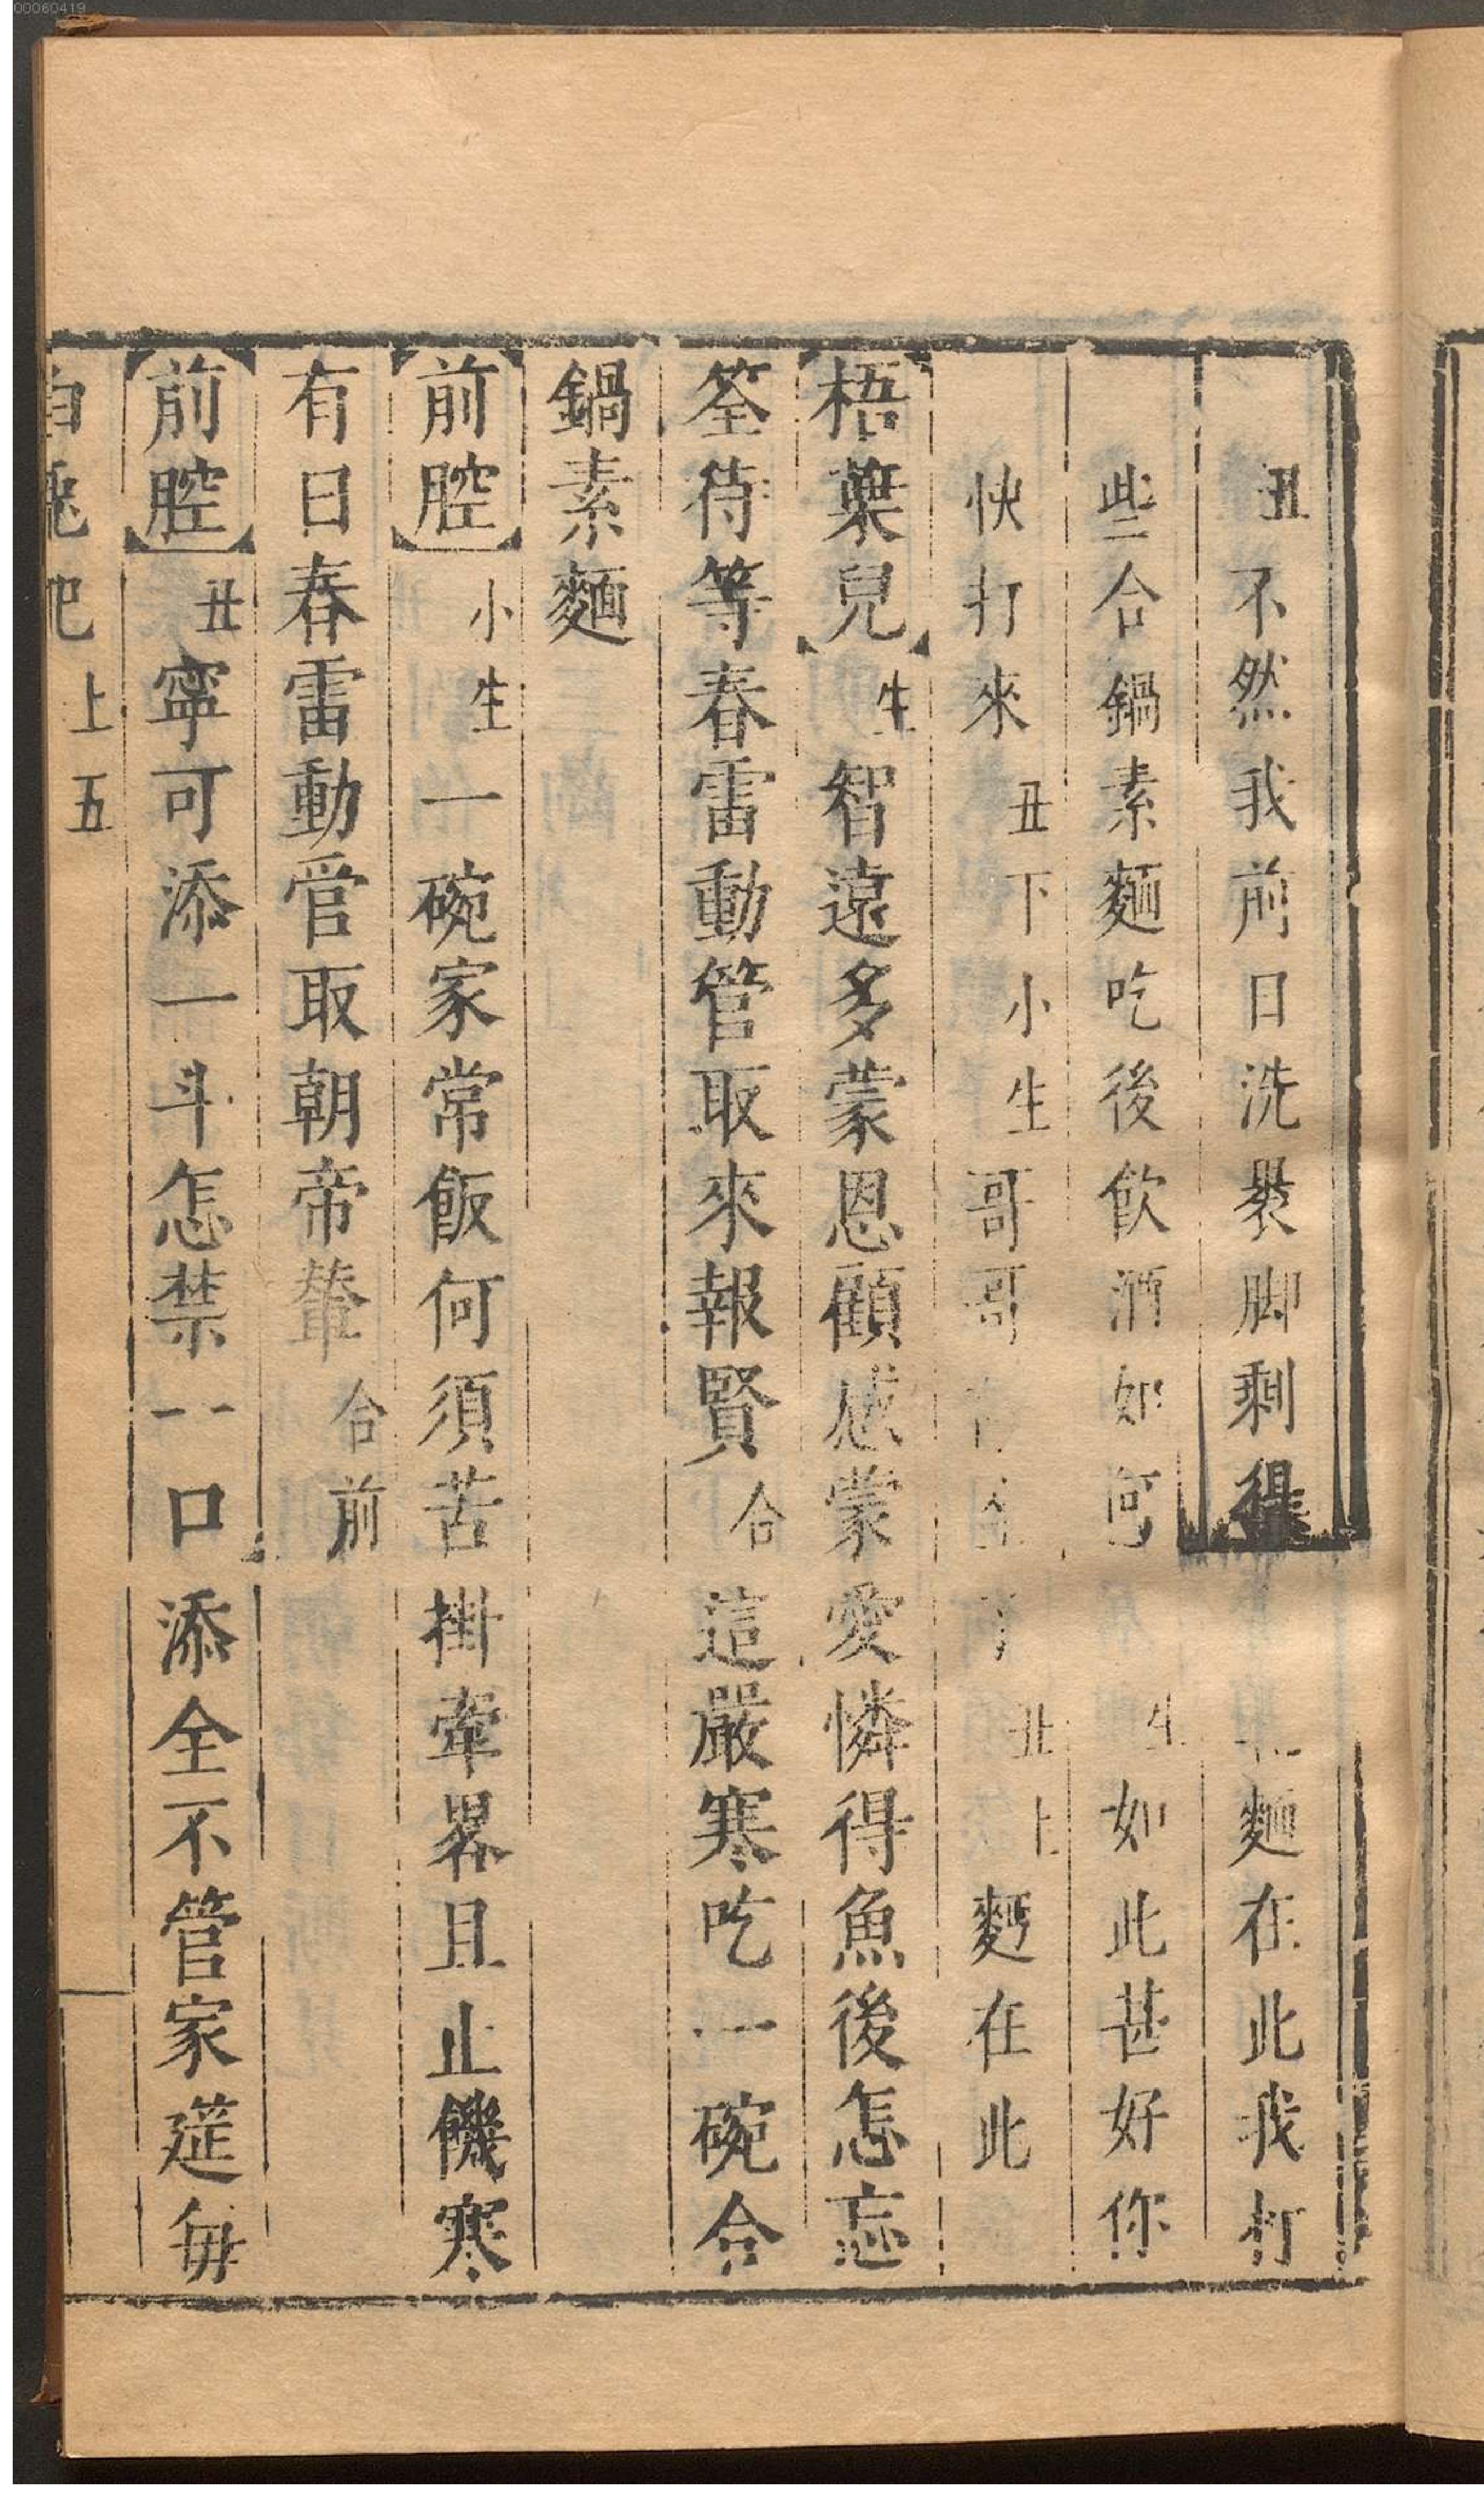 00060419
丑不然我前日洗裹脚剩得麵在此我打
些合鍋素麵吃後飲酒如何生如此甚好你
快打來丑下小生哥哥丑上麪在此
【梧葉兒】生智遠多蒙恩顧感蒙愛憐得魚後怎忘
筌待等春雷動管取來報賢合這嚴寒吃一碗合
鍋素麵
【前腔】小生一碗家常飯何須苦掛牽畧且止饑寒
有日春雷動管取朝帝輦合前
【前腔】丑寧可添一斗怎禁一口添全不管家筵每
白兔記上五